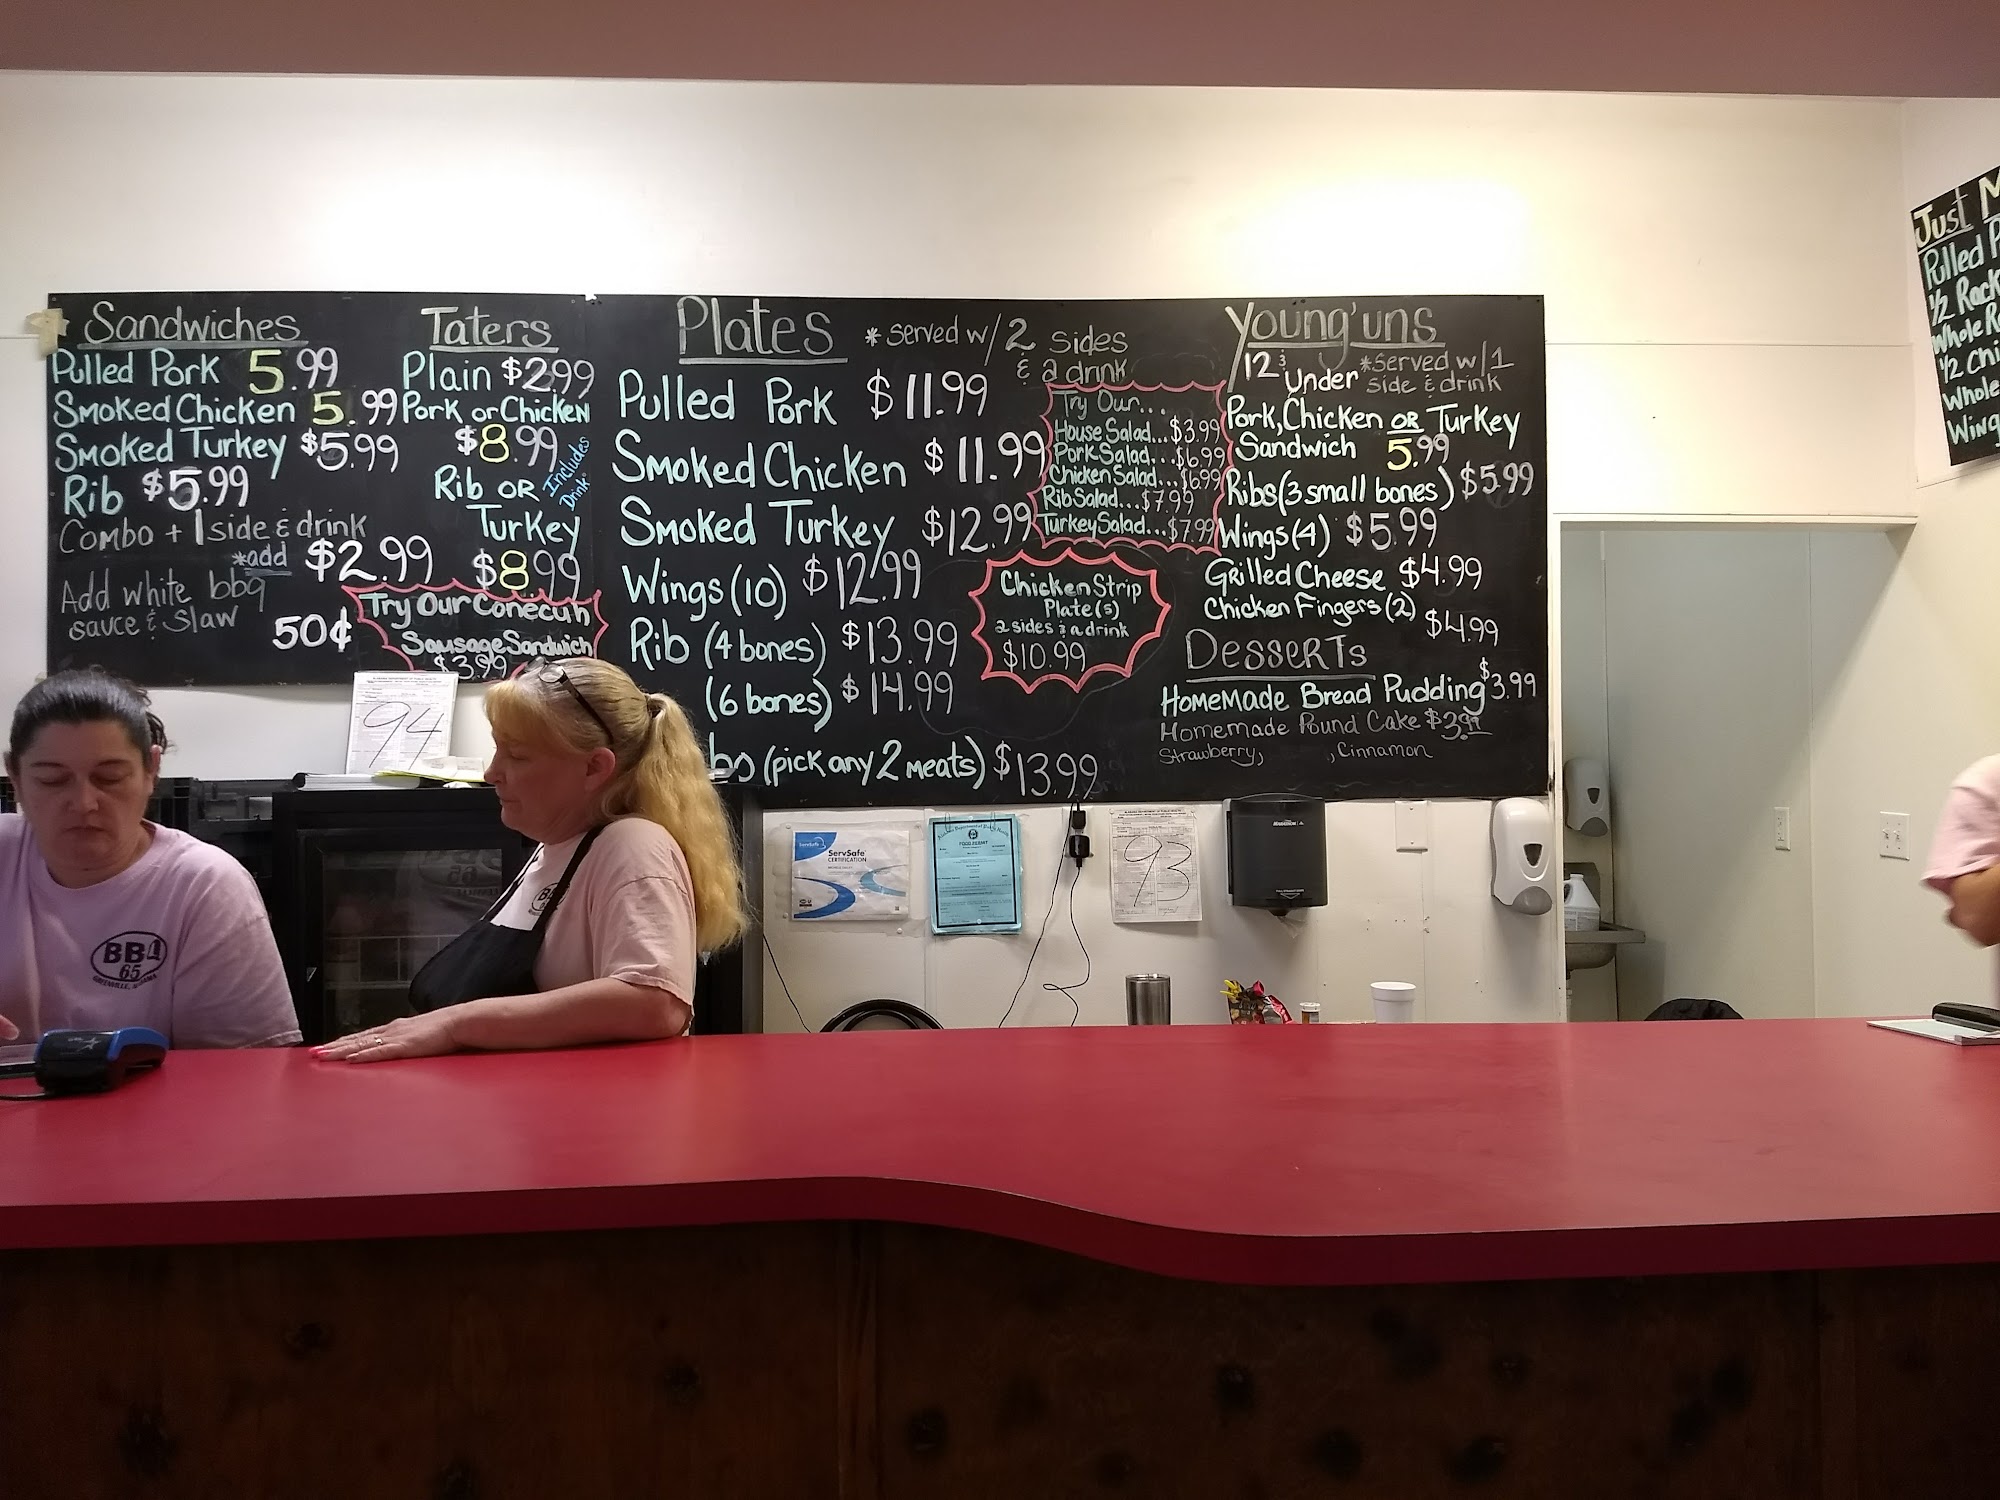 Sandwiches
Pulled Pork 5.99
Smoked Chicken 5.99
Smoked Turkey $5.99
Rib $5.99
Combo + 1 side & drink
*add $2.99
Add white bbq
sauce & slaw 50¢
Taters
Plain $2.99
Pork or Chicken
$8.99
Rib or
Turkey
$8.99
Includes
Drink
Try Our Conecuh
Sausage Sandwich
$3.99
Plates *served w/ 2 sides
& a drink
Pulled Pork $11.99
Smoked Chicken $11.99
Smoked Turkey $12.99
Wings (10) $12.99
Rib (4 bones) $13.99
(6 bones) $14.99
bo (pick any 2 meats) $13.99
Try Our...
House Salad...$3.99
Pork Salad...$6.99
Chicken Salad...$6.99
Rib Salad...$7.99
Turkey Salad...$7.99
Chicken Strip
Plate (5)
2 sides & a drink
$10.99
Young'uns
12 & Under *served w/ 1
side & drink
Pork, Chicken or Turkey
Sandwich 5.99
Ribs (3 small bones) $5.99
Wings (4) $5.99
Grilled Cheese $4.99
Chicken Fingers (2)
$4.99
Desserts
Homemade Bread Pudding $3.99
Homemade Pound Cake $3.99
Strawberry, , Cinnamon
Just M
Pulled P
1/2 Rack
Whole R
1/2 Chi
Whole
Wing
94
93
ServSafe
ServSafe
CERTIFICATION
FOOD PERMIT
BBQ
65
GREENVILLE, ALABAMA